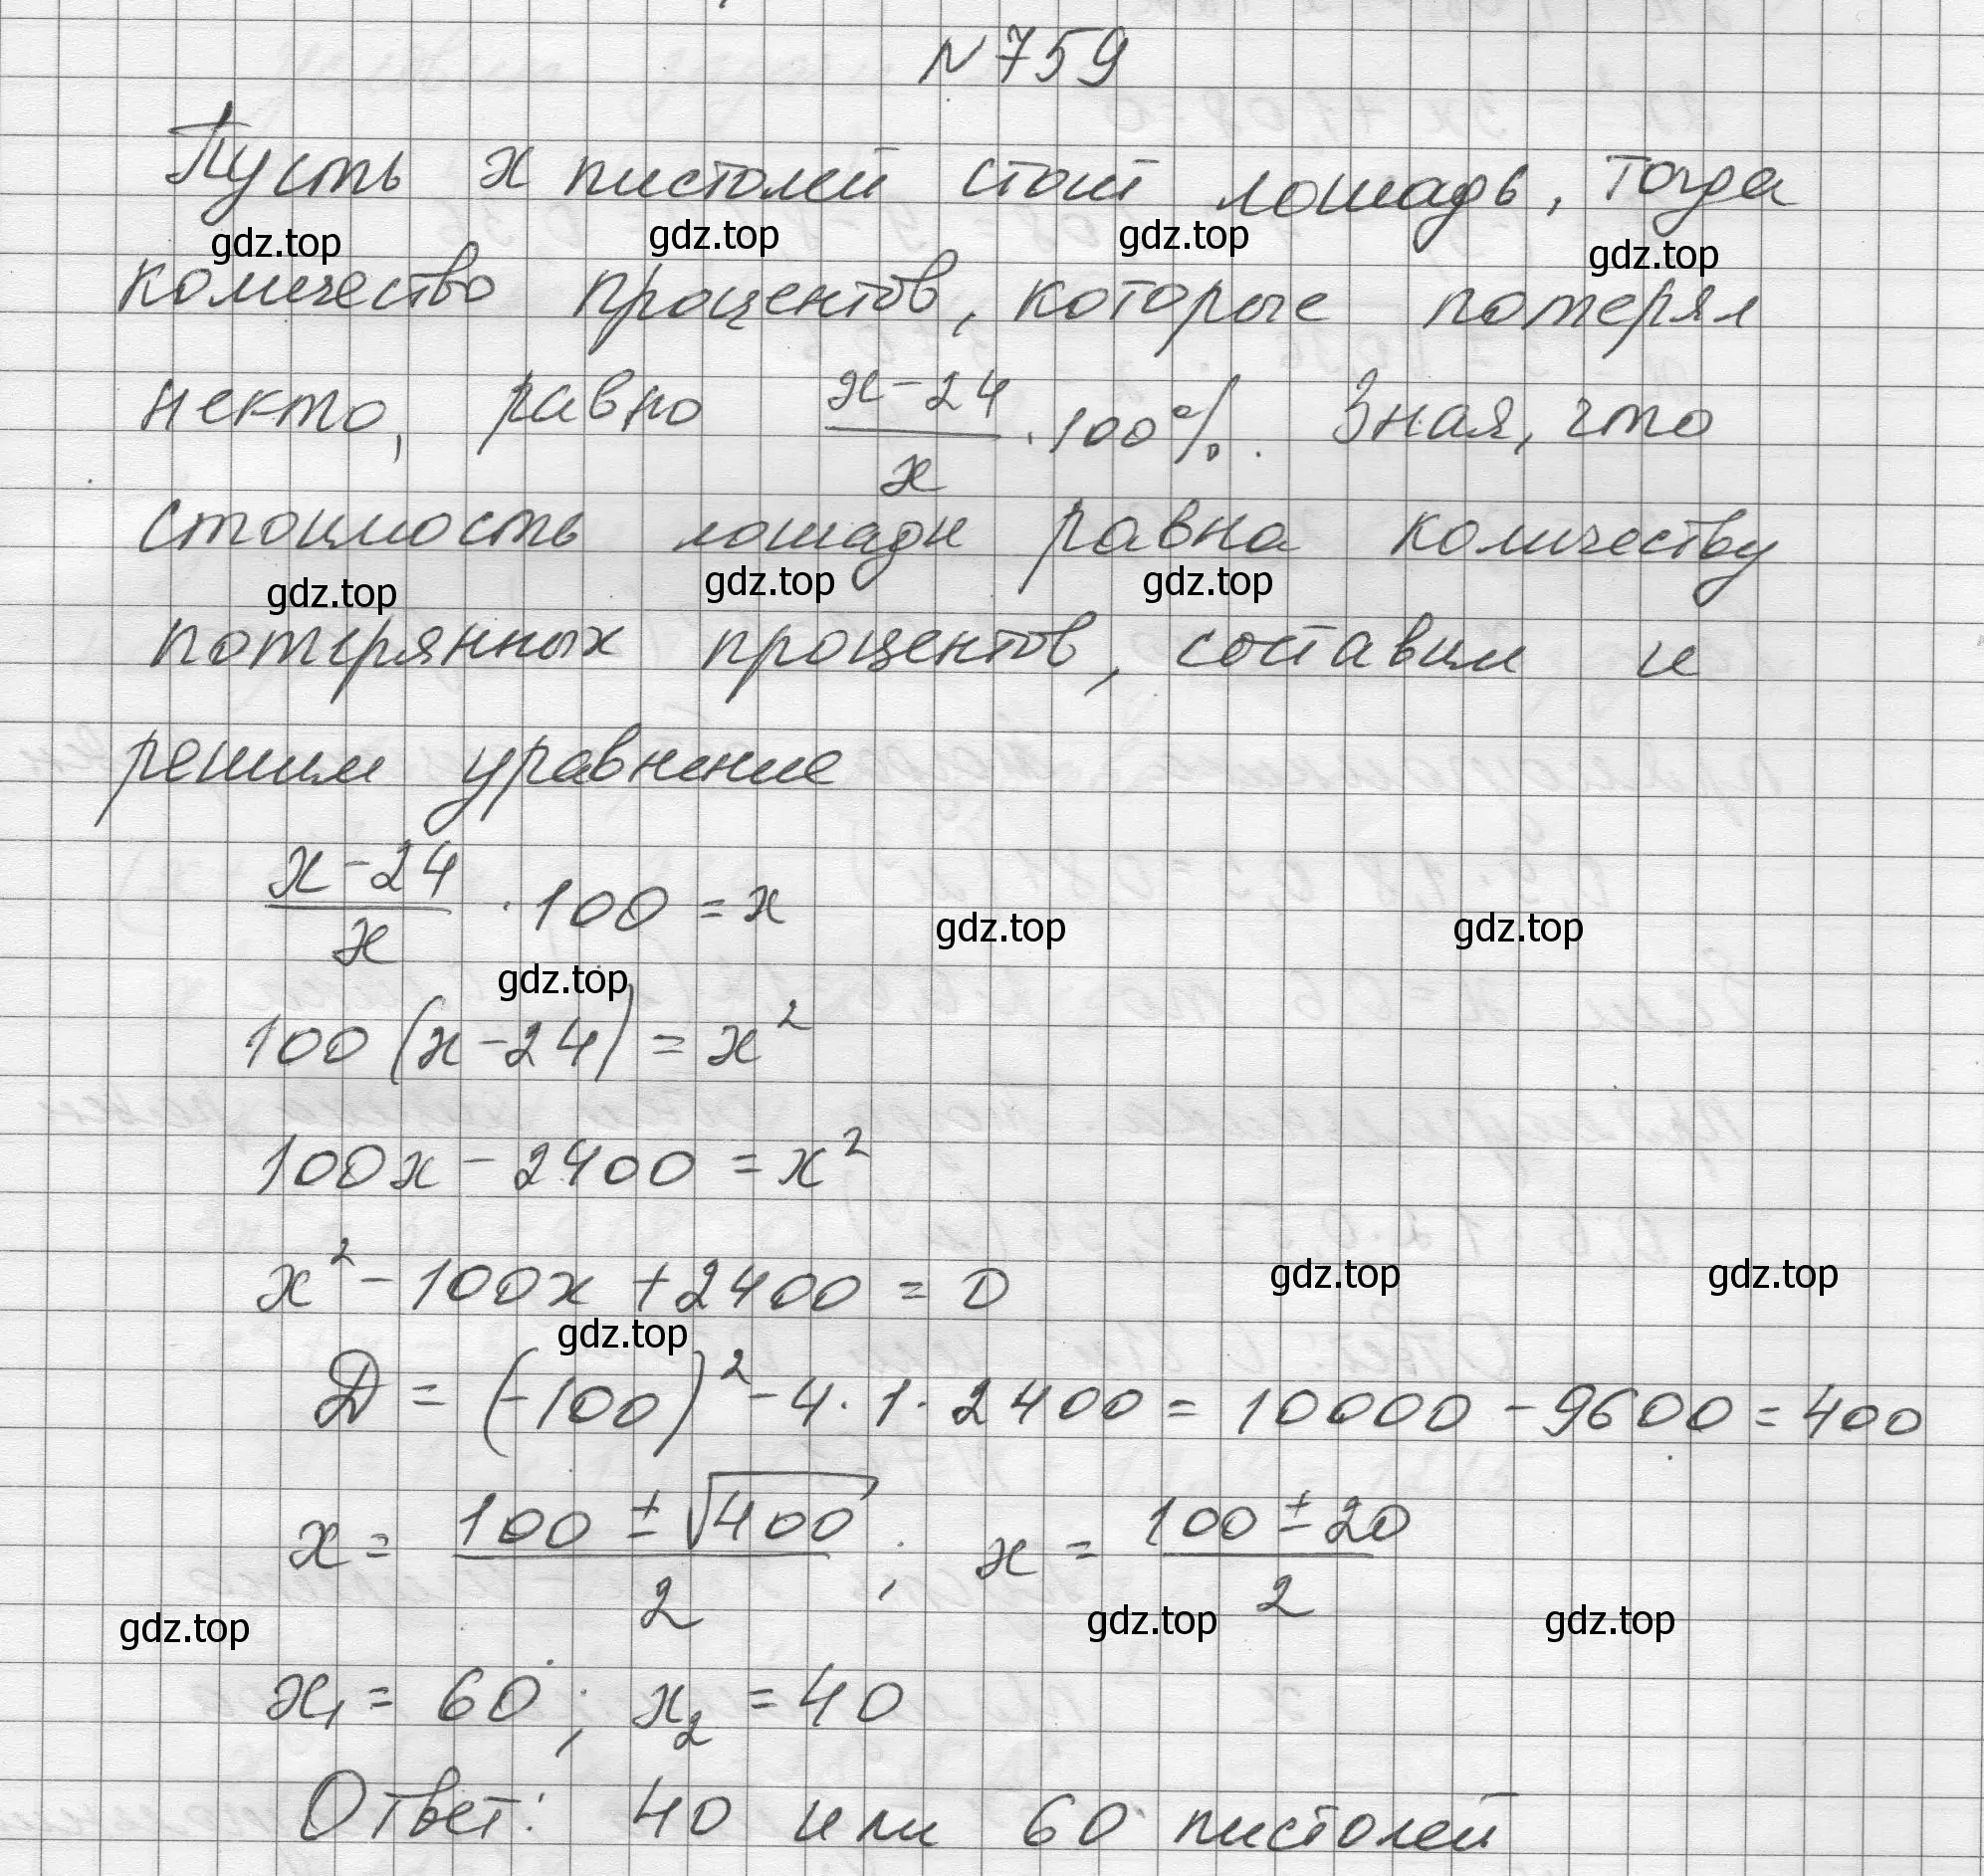 N 759
Пусть x пистолей стоит лошадь, тогда
gdz.top gdz.top gdz.top gdz.top
количество процентов, которые потерял
некто, равно (x-24)/x · 100%. Зная, что
стоимость лошади равна количеству
gdz.top gdz.top gdz.top
потерянных процентов, составим и
решим уравнение
(x-24)/x · 100 = x
gdz.top gdz.top
gdz.top
100(x-24) = x²
100x - 2400 = x²
x² - 100x + 2400 = 0
gdz.top gdz.top
gdz.top
D = (-100)² - 4·1·2400 = 10000 - 9600 = 400
x = (100 ± √400)/2 ; x = (100 ± 20)/2
gdz.top gdz.top gdz.top
x₁ = 60 ; x₂ = 40
Ответ: 40 или 60 пистолей